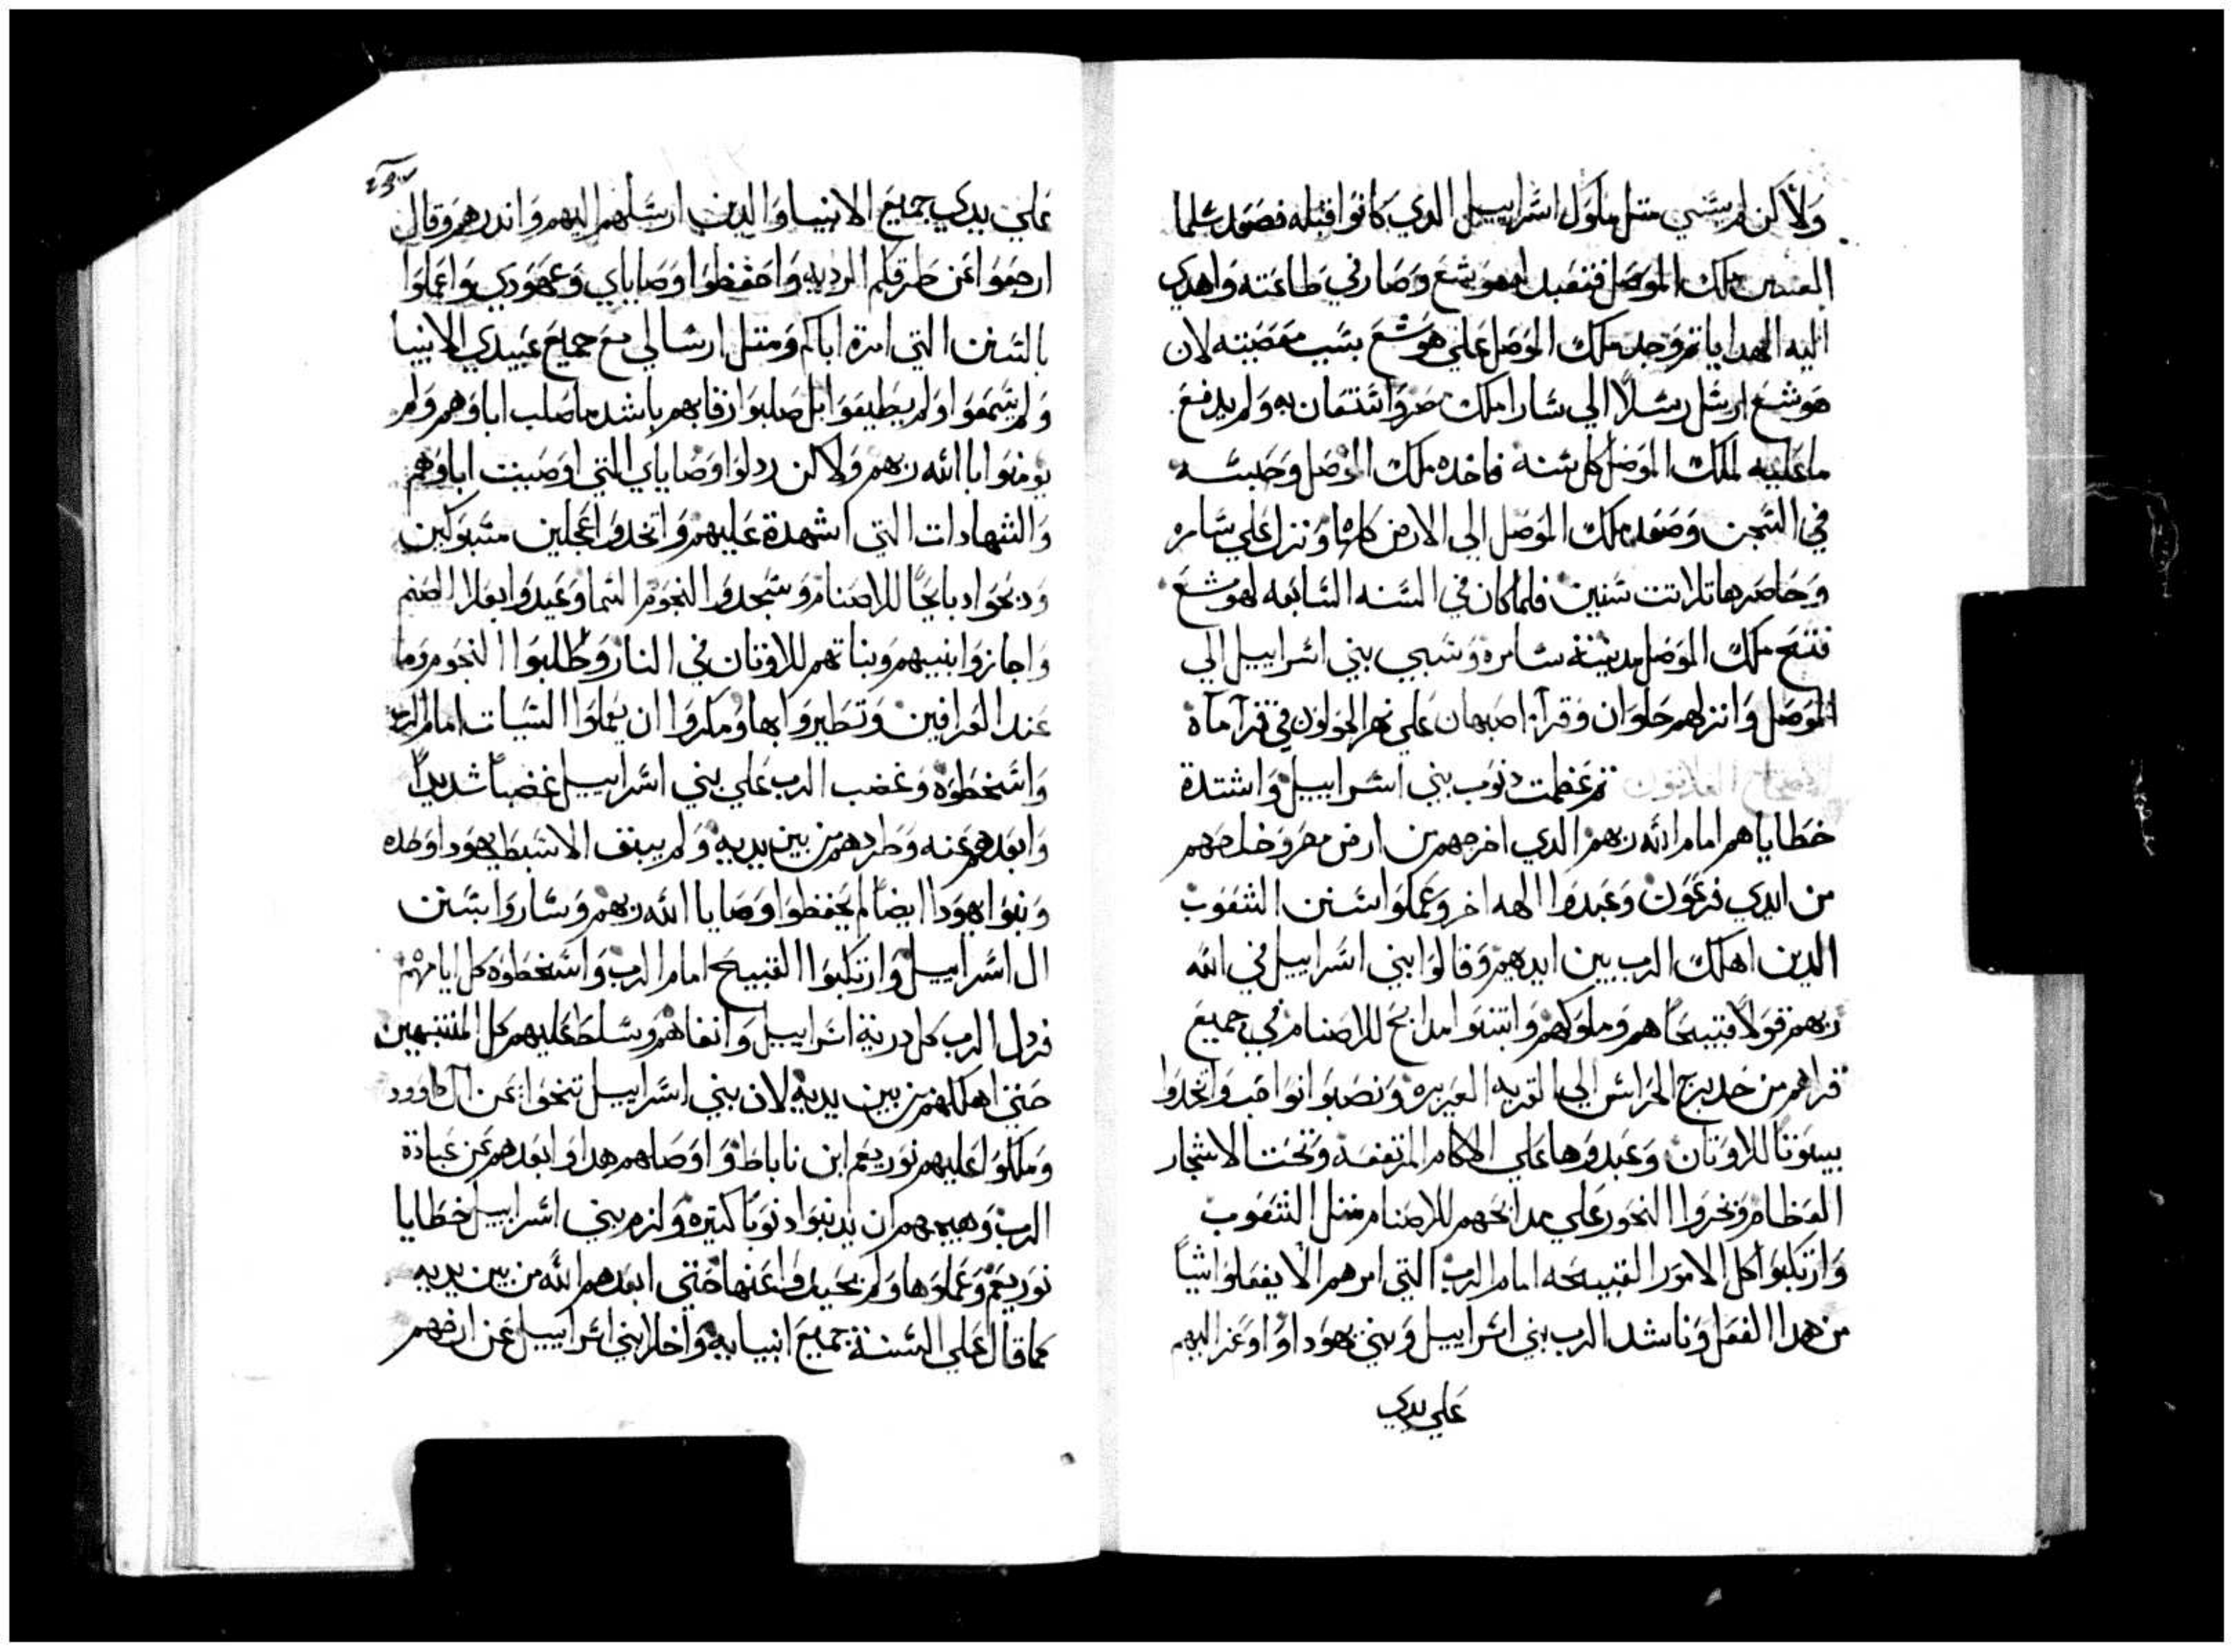 ولاكن لم يسي متل ملوك اسراييل الدي كانوا قبله فصعد شلما
العسر ملك الموصل فتعبد له هوشع وصار في طاعته واهدي
اليه الهدايا تم وجد ملك الموصل علي هوشع بسبب معصيته لان
هوشع ارسل رسلاً الي سارا ملك مصر واستعان به ولم يدفع
ما عليه لملك الموصل كل سنه فاخده ملك الموصل وحبسه
في السجن وصعد ملك الموصل الي الارض كلها ونزل علي سامره
وحاصرها تلاتت سنين فلما كان في السنه السابعه لهوشع
فتح ملك الموصل مدينة سامره وسبي بني اسراييل الي
الموصل وانزلهم حلوان وقرآ اصبهان علي نهر الجولون في قرآ ماه
الاصحاح العلاتون تم عظمت دنوب بني اسراييل واشتدة
خطاياهم امام الله ربهم الدي اخرجهم من ارض مصر وخلصهم
من ايدي فرعون وعبدوا الهه اخر وعملوا سنن الشعوب
الدين اهلك الرب بين ايديهم وقالوا بني اسراييل في الله
ربهم قولاً قبيحاً هم وملوكهم وابتنوا مدابح للاصنام في جميع
قراهم من حد برج الحراس الي القريه العزيزه ونصبوا نواصب واتخدوا
بيوتاً للاوتان وعبدوها علي الاكام المرتفعه وتحت الاشجار
العظام ونحروا النحور علي مدابحهم للاصنام متل الشعوب
وارتكبوا كل الامور القبيحه امام الرب التي امرهم الا يفعلوا شياً
من هدا الفعل وناشد الرب بني اسراييل وبني يهودا واوعز اليهم
علي يدي
علي يدي جميع الانبيا والدين ارسلهم اليهم واندرهم وقال
ارجعوا عن طرقكم الرديه واحفظوا وصاياي وعهودي واعملوا
بالسنن التي امرة اباكم ومتل ارسالي مع جميع عبيدي الانبيا
ولم يسمعوا ولم يطيعوا بل صلبوا رقابهم باشد ما صلب اباوهم ولم
يومنوا باالله ربهم ولاكن ردلوا وصاياي التي اوصيت اباوهم
والشهادات التي اشهدة عليهم واتخدوا عجلين مسبوكين
ودبحوا دبايحاً للاصنام وسجدوا لنجوم السما وعبدوا بعلا الصنم
واجازوا بنيهم وبناتهم للاوتان في النار وطلبوا النجوم وما
عند العرافين وتطيروا بها ومكروا ان يعملوا السيات امام الرب
واسخطوه وغضب الرب علي بني اسراييل غضباً شديداً
وابعدهم عنه وطردهم من بين يديه ولم يبق الا سبط يهودا وحده
وبنوا يهودا ايضاً لم يحفظوا وصايا الله ربهم وساروا بسنن
ال اسراييل وارتكبوا القبيح امام الرب واسخطوه كل ايامهم
فردل الرب كل درية اسراييل وانفاهم وسلط عليهم كل المنتبهين
حتي اهلكهم من بين يديه لان بني اسراييل تنحوا عن ال داوود
وملكوا عليهم نوربعم ابن ناباط واوصلهم هدا وابعدهم عن عبادة
الرب وهيجهم ان يدنبوا دنوباً كتيره ولزم بني اسراييل خطايا
نوربعم وعملوها ولم يحيدوا عنها حتي ابعدهم الله من بين يديه
كما قال علي السنة جميع انبيايه واخلا بني اسراييل عن ارضهم